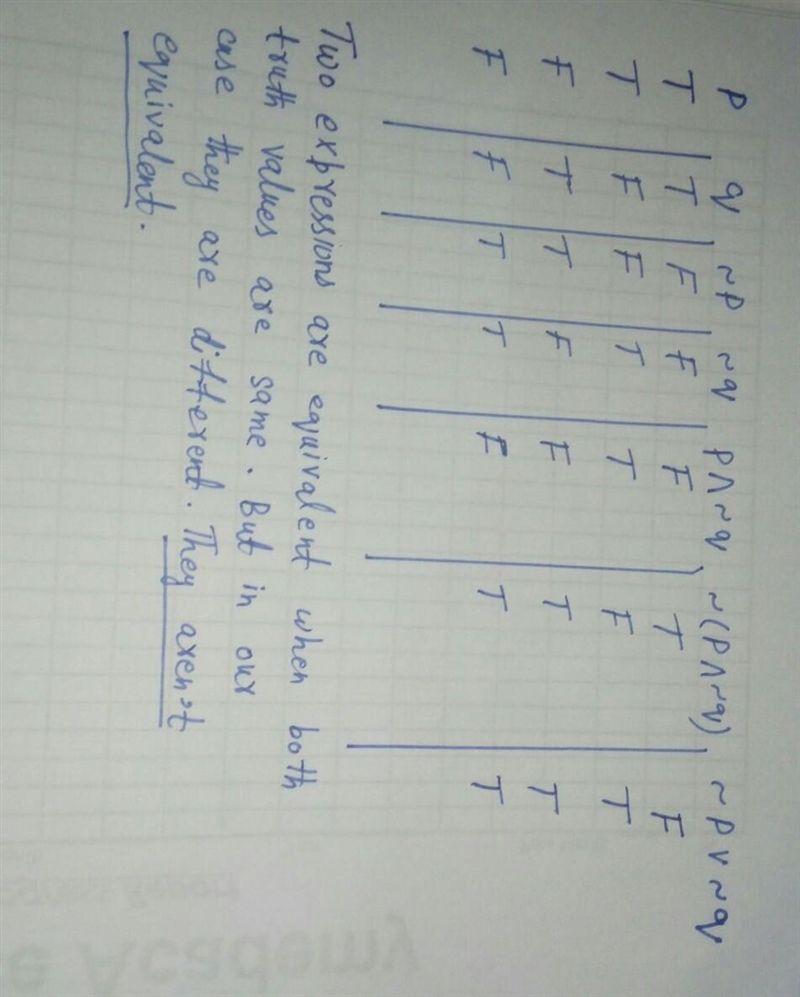 P q ~P ~q P∧~q ~(P∧~q) ~P∨~q
T T F F F T F
T F F T T F T
F T T F F T T
F F T T F T T
Two expressions are equivalent when both
truth values are same. But in our
case they are different. They aren't
equivalent.
e Academy
Report